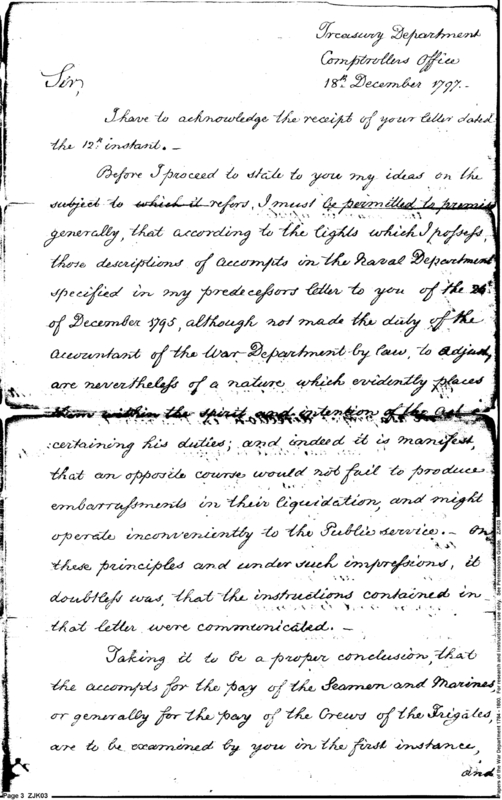 Treasury Department
Comptrollers Office
18th December 1797.-
Sir,
I have to acknowledge the receipt of your letter dated
the 12th instant. -
Before I proceed to state to you my ideas on the
subject to which it refers, I must be permitted to premise
generally, that according to the lights which I possess,
those descriptions of accompts in the Naval Department
specified in my predecessors letter to you of the 26th
of December 1795, although not made the duty of the
Accountant of the War Department by law, to adjust,
are nevertheless of a nature which evidently places
them within the spirit and intention of the act
certaining his duties; and indeed it is manifest,
that an opposite course would not fail to produce
embarrassments in their liquidation, and might
operate inconveniently to the Public service. - On
these principles and under such impressions, it
doubtless was, that the instructions contained in
that letter were communicated. -
Taking it to be a proper conclusion, that
the accompts for the pay of the Seamen and Marines,
or generally for the pay of the Crews of the Frigates,
are to be examined by you in the first instance,
and
Page 3 ZJK03
Papers of the War Department 1784 - 1800, For research and instructional use